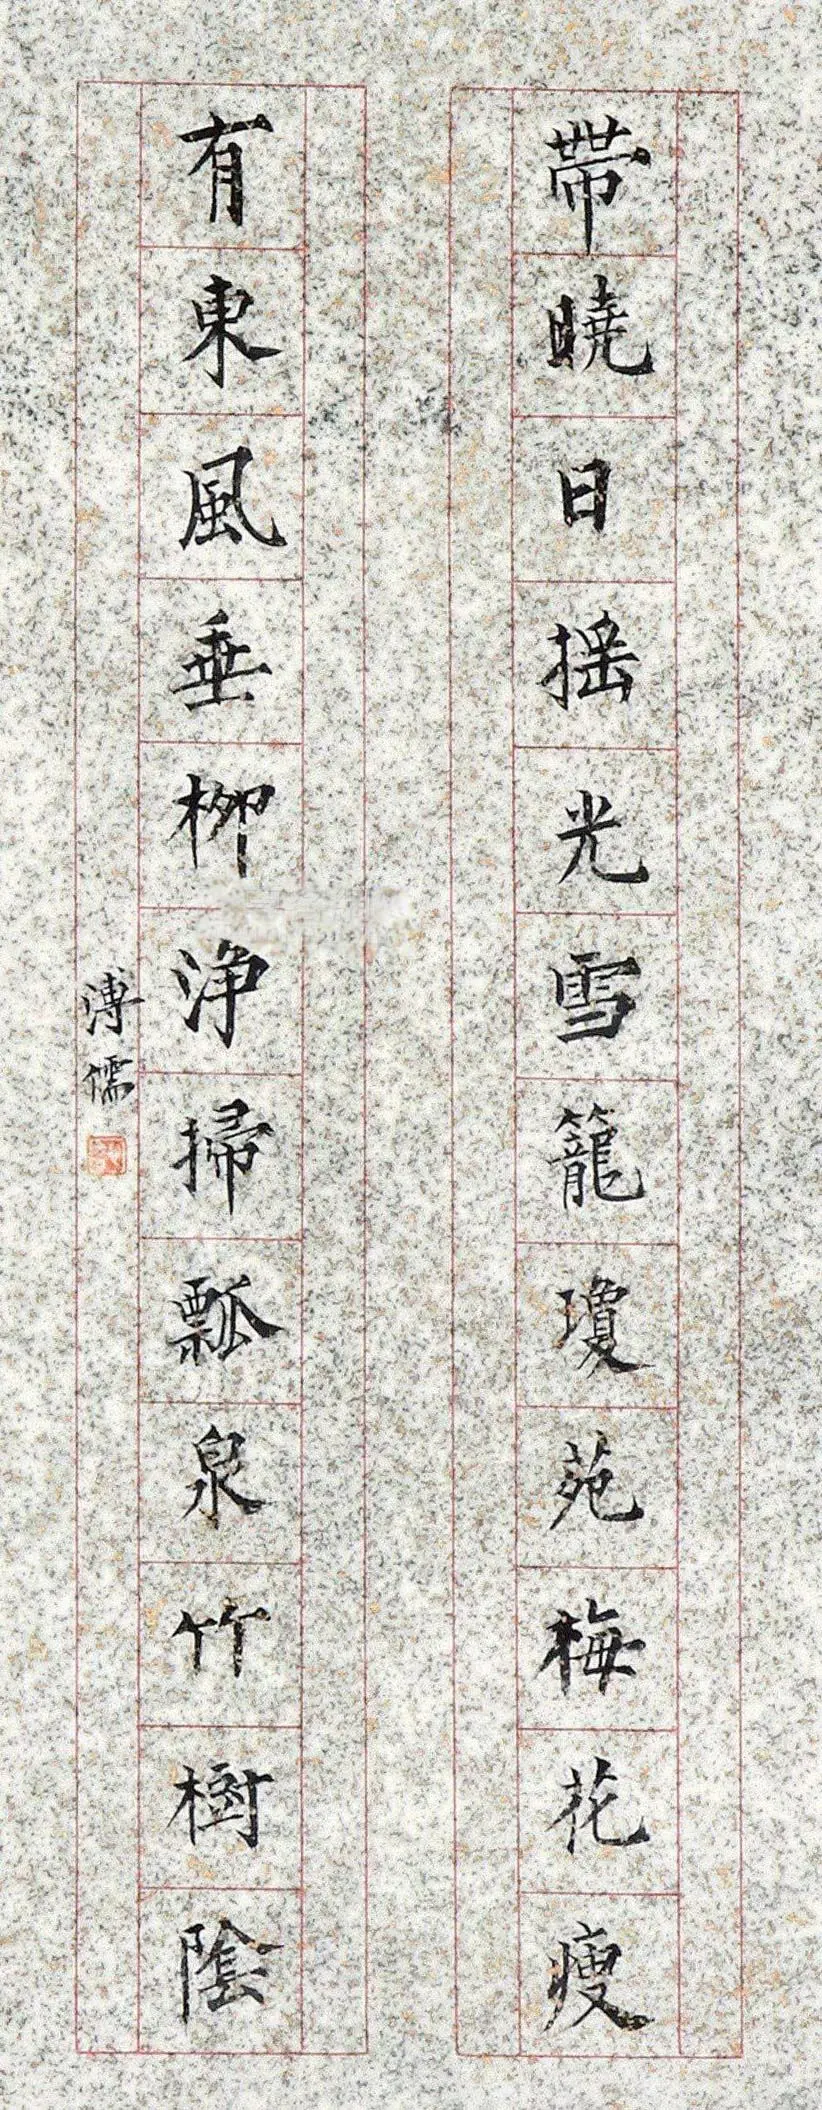 帶曉日搖光雪籠瓊苑梅花瘦
有東風垂柳淨掃瓢泉竹樹陰
溥儒